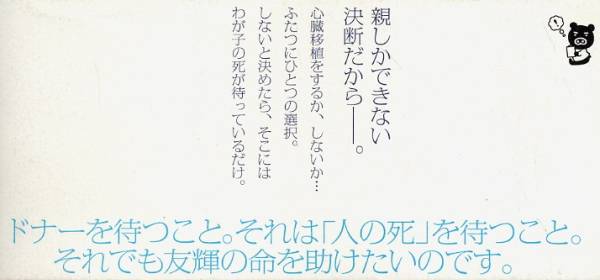 親しかできない
決断だから――。
心臓移植をするか、しないか…
ふたつにひとつの選択。
しないと決めたら、そこには
わが子の死が待っているだけ。
ドナーを待つこと。それは「人の死」を待つこと。
それでも友輝の命を助けたいのです。